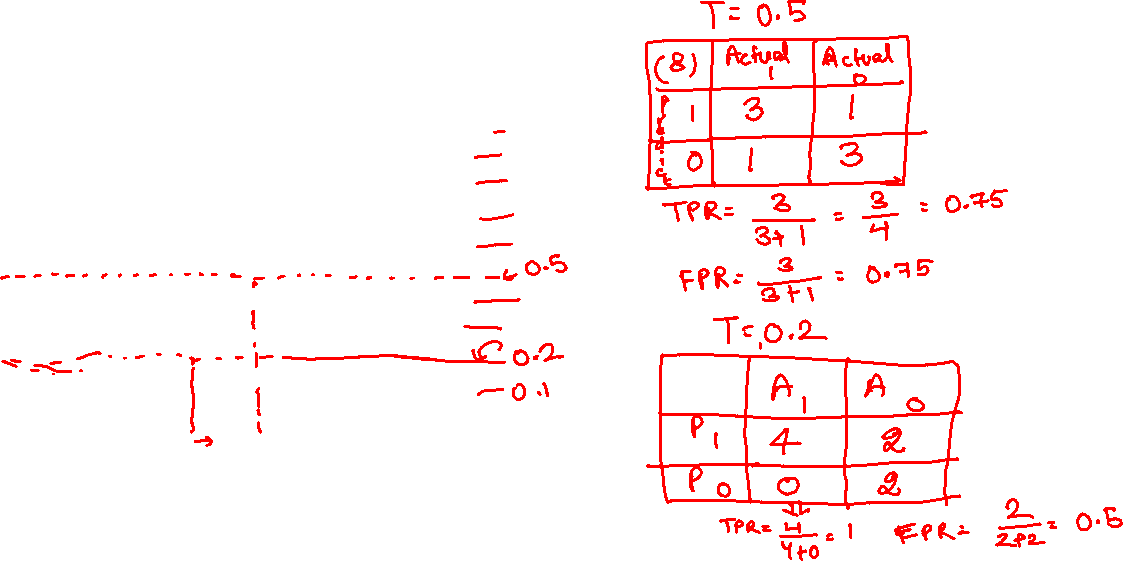 T = 0.5
(8) Actual 1 Actual 0
1 3 1
0 1 3
TPR = 3/3+1 = 3/4 = 0.75
FPR = 3/3+1 = 0.75
0.5
0.2
0.1
T = 0.2
A1 A0
P1 4 2
P0 0 2
TPR = 4/4+0 = 1 FPR = 2/2+2 = 0.5